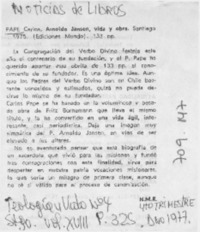 Noticias de Libros
PAPE Carlos, Arnoldo Janssen, vida y obra. Santiago
1975. (Ediciones Mundo), 132 pp.
La Congregación del Verbo Divino festeja este
año el centenario de su fundación, y el P. Pape ha
querido aportar, sus obra de 133 pp. al
conocimiento de su fundador. Es una óptima idea. Aun-
que los Padres del Verbo Divino son en Chile bas-
tante conocidos y estimados, quizá no puede de-
cirse lo mismo de su fundador.
Carlos Pape se ha basado en la
sobre de Fritz Bornemann que lleva el mismo
título, y la ha convertido en una vida ágil, inte-
resante, casi periodística. Deja una imagen muy
simpática del P. Arnoldo Janssen, en vías de ser
elevado a los altares.
No es aventurado pensar que esta biografía de
un sacerdote que vivió para las misiones y fundó
tres congregaciones con esta finalidad, sirva para
despertar en nuestra patria vocaciones misioneras,
lo que sería un milagro de primera clase, aunque
no sea válido para el proceso de canonización.
N.M.R.
Teología y Vida Nº4
Stgo. Vol. XVIII P. 325
4to TRIMESTRE
Año 1977.